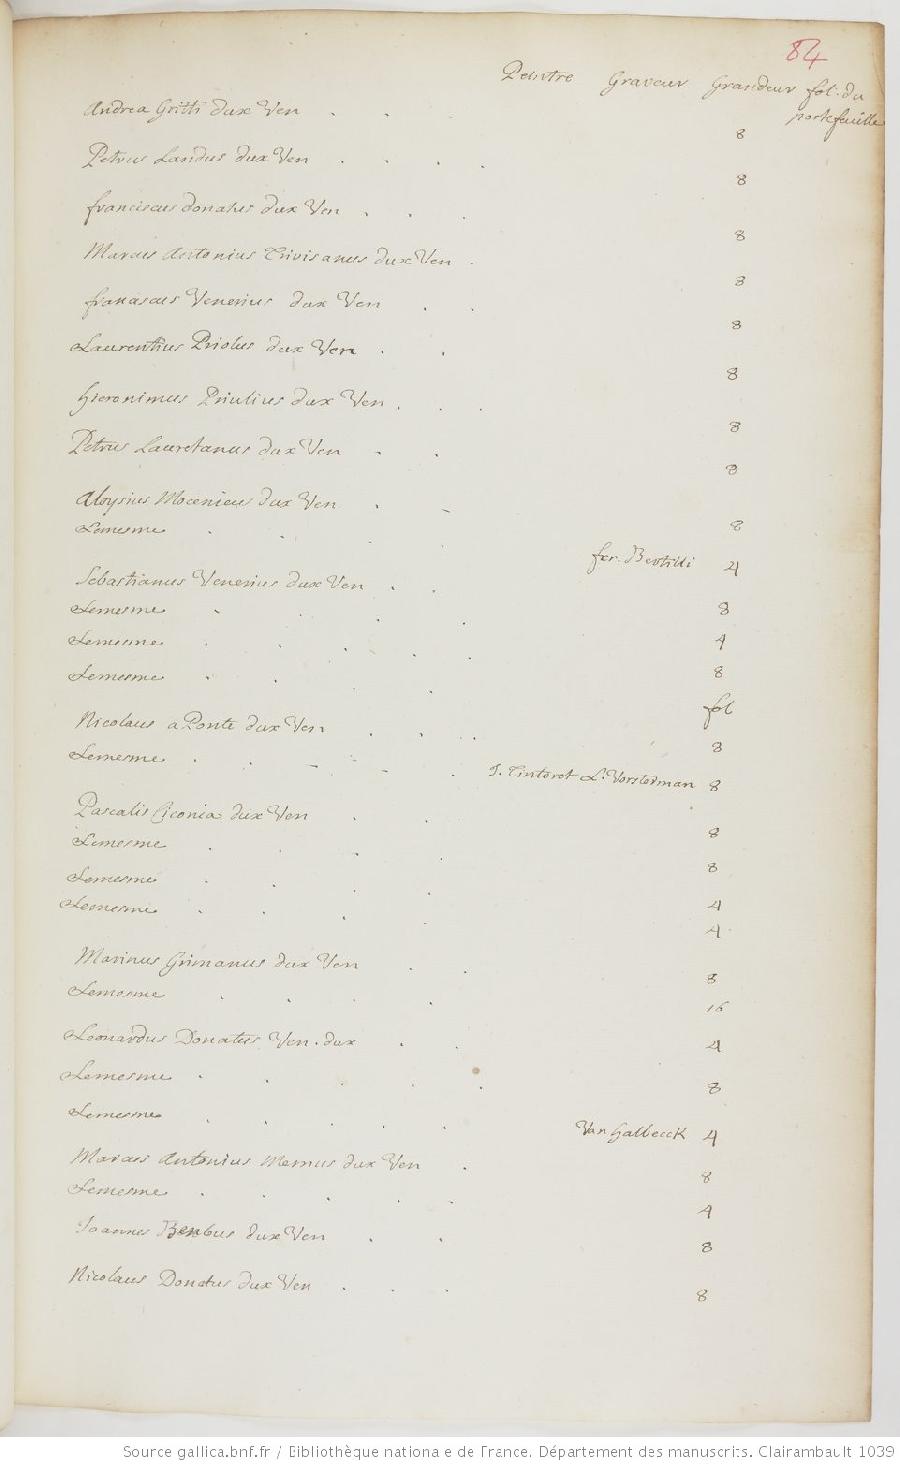 84
Peintre Graveur Grandeur fol. du
portefeuille
Andrea Gritti dux Ven . . . 8
Petrus Landus dux Ven . . . . 8
franciscus donatus dux Ven . . . 8
Marcus Antonius Trivisanus dux Ven . 8
franciscus Venerius dux Ven . . 8
Laurentius Priolus dux Ven . . 8
Hieronimus Priulius dux Ven . . . 8
Petrus Lauretanus dux Ven . . 8
Aloysius Mocenicus dux Ven . . 8
Lemesme . . . . fr. Bertilli 4
Sebastianus Venerius dux Ven . . 8
Lemesme . . . . 4
Lemesme . . . . 8
Lemesme . . . fol
Nicolaus a Ponte dux Ven . . . 8
Lemesme . . . . . J. Tintoret L. Vorsterman 8
Pascalis Ciconia dux Ven . . 8
Lemesme . . . . 8
Lemesme . . . . 4
Lemesme . . . . 4
Marinus Grimanus dux Ven . . 8
Lemesme . . . . 16
Leonardus Donatus Ven. dux . . 4
Lemesme . . . . . 8
Lemesme . . . . . Van Halbeeck 4
Marcus Antonius Memus dux Ven . 8
Lemesme . . . . . 4
Joannes Bembus dux Ven . . 8
Nicolaus Donatus dux Ven . . . 8
Source gallica.bnf.fr / Bibliothèque nationale de France. Département des manuscrits. Clairambault 1039